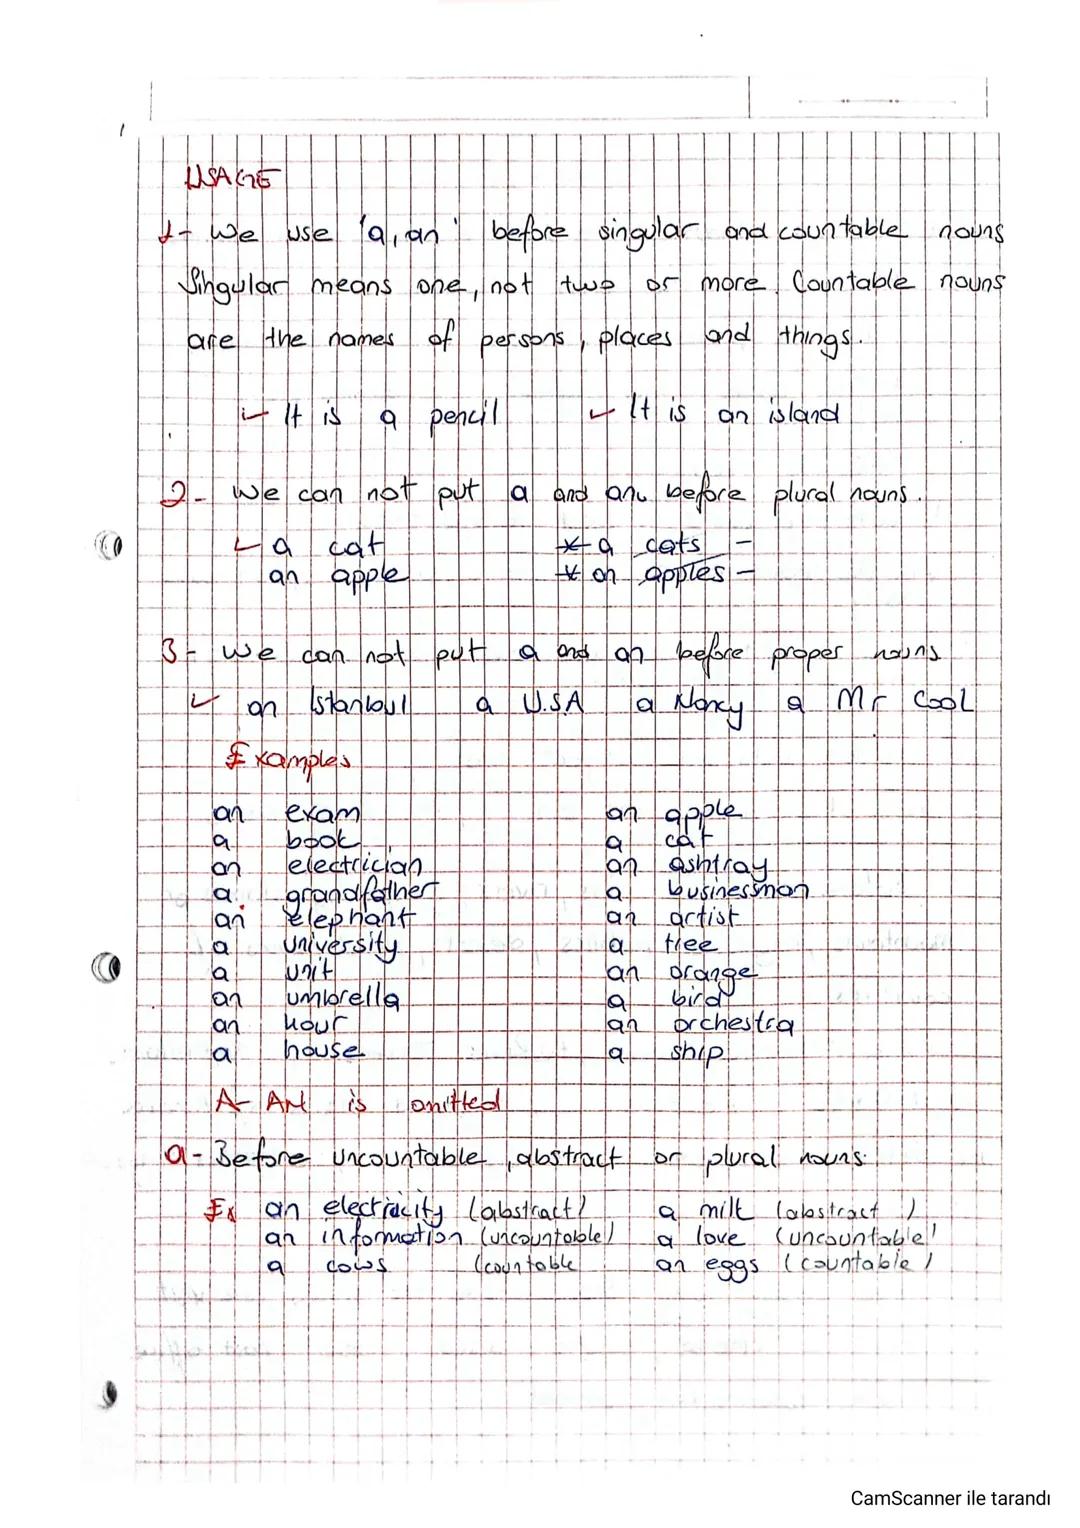 USAGE
1- We use 'a, an' before singular and countable nouns
Singular means one, not two or more. Countable nouns
are the names of persons, places and things.
✓ It is a pencil ✓ It is an island
2- We can not put a and an before plural nouns.
✓ a cat * a cats -
an apple * an apples -
3- We can not put a and an before proper nouns
✓ an Istanbul a U.S.A a Nancy a Mr Cool
Examples
an exam an apple
a book a cat
an electrician an ashtray
a grandfather a businessman
an elephant an artist
a university a tree
a unit an orange
an umbrella a bird
an hour an orchestra
a house a ship
A- AN is omitted
a- Before uncountable, abstract or plural nouns.
Ex an electricity (abstract) a milk (abstract)
an information (uncountable) a love (uncountable)
a cows (countable an eggs (countable)
CamScanner ile tarandı